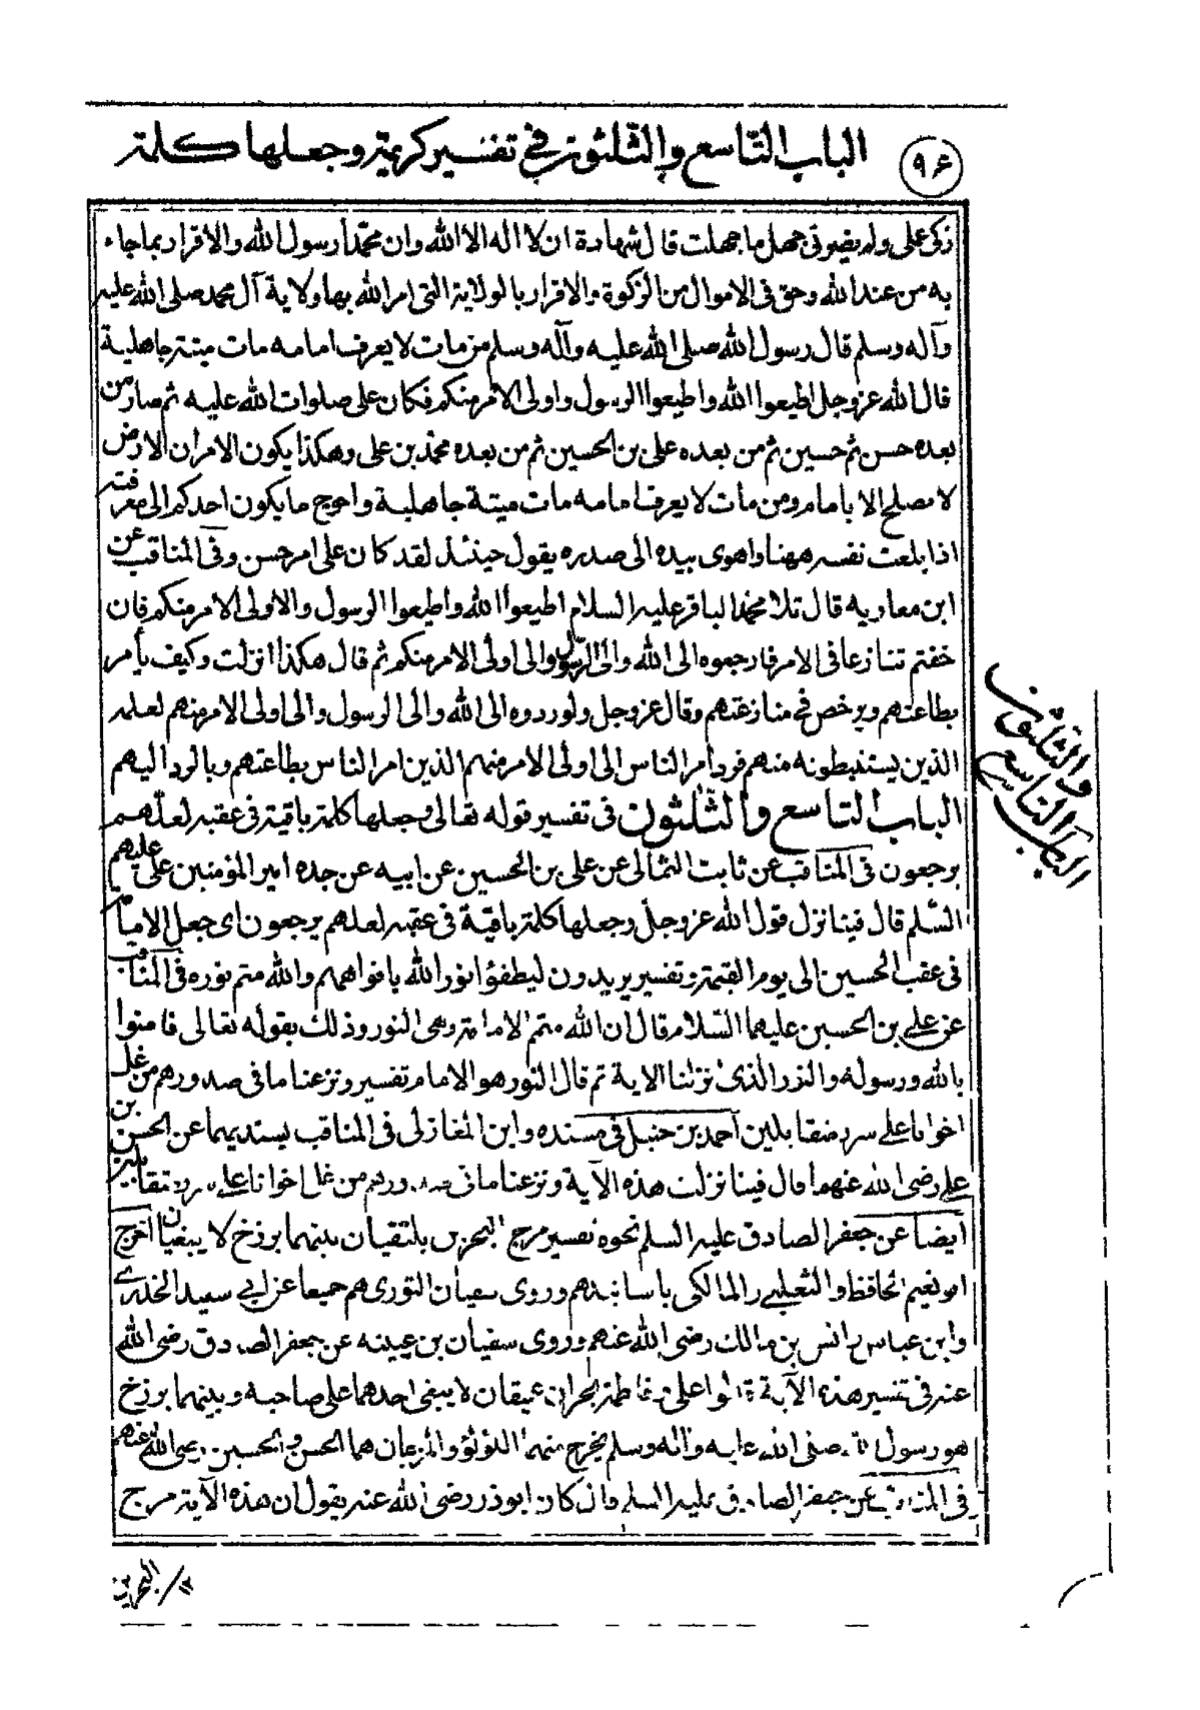 الباب التاسع والثلثون في تفسير كريمة وجعلها كلمة
٩٤
زكى عملى ولم يضرنى جهل ما جهلت قال شهادة ان لا اله الا الله وان محمّدا رسول الله والاقرار بما جاء
به من عند الله وحق فى الاموال من الزكوة والاقرار بالولاية التى امر الله بها ولاية آل محمد صلى الله عليه
وآله وسلم قال رسول الله صلى الله عليه وآله وسلم من مات لا يعرف امامه مات ميتة جاهلية
قال الله عز وجل اطيعوا الله واطيعوا الرسول واولى الامر منكم فكان على صلوات الله عليه ثم صار من
بعده حسن ثم حسين ثم من بعده على بن الحسين ثم من بعده محمد بن على وهكذا يكون الامر ان الارض
لا تصلح الا بامام ومن مات لا يعرف امامه مات ميتة جاهلية واحوج ما يكون احدكم الى معرفته
اذا بلغت نفسه ههنا واهوى بيده الى صدره يقول حينئذ لقد كان على امر حسن وفى المناقب عن
ابن معاوية قال تلا محمد الباقر عليه السلام اطيعوا الله واطيعوا الرسول والاولى الامر منكم فان
خفتم تنازعا فى الامر فارجعوه الى الله والى الرسول والى اولى الامر منكم ثم قال هكذا انزلت وكيف يأمر
بطاعتهم ويرخص فى منازعتهم وقال عز وجل ولو ردوه الى الله والى الرسول والى اولى الامر منهم لعلمه
الذين يستنبطونه منهم فرد امر الناس الى اولى الامر منهم الذين امر الناس بطاعتهم وبالرد اليهم
الباب التاسع والثلثون فى تفسير قوله تعالى وجعلها كلمة باقية فى عقبه لعلهم
يرجعون فى المناقب عن ثابت الثمالى عن على بن الحسين عن ابيه عن جده امير المؤمنين على عليهم
السلم قال فينا نزل قول الله عز وجل وجعلها كلمة باقية فى عقبه لعلهم يرجعون اى جعل الامامة
فى عقب الحسين الى يوم القيمة وتفسير يريدون ليطفؤا نور الله بافواههم والله متم نوره فى المناقب
عن على بن الحسين عليهما السلام قال ان الله متم الامامة وهى النور وذلك بقوله تعالى فامنوا
بالله ورسوله والنور الذى نزلنا الاية ثم قال النور هو الامام تفسير ونزعنا ما فى صدورهم من غل
اخوانا على سرر متقابلين احمد بن حنبل فى مسنده وابن المغازلى فى المناقب بسنديهما عن الحسن بن
على رضى الله عنهما قال فينا نزلت هذه الآية ونزعنا ما فى صدورهم من غل اخوانا على سرر متقابلين
ايضا عن جعفر الصادق عليه السلم نحوه تفسير مرج البحرين يلتقيان بينهما برزخ لا يبغيان اخرج
ابو نعيم الحافظ والثعلبى والمالكى باسانيدهم وروى سفيان الثورى هم جميعا عن ابى سعيد الخدرى
وابن عباس وانس بن مالك رضى الله عنهم وروى سفيان بن عيينه عن جعفر الصادق رضى الله
عنه فى تفسير هذه الآية قالوا على وفاطمة بحران عميقان لا يبغى احدهما على صاحبه وبينهما برزخ
هو رسول الله صلى الله عليه وآله وسلم يخرج منهما اللؤلؤ والمرجان هما الحسن والحسين رضى الله عنهم
فى المناقب عن جعفر الصادق عليه السلم قال كان ابو ذر رضى الله عنه يقول ان هذه الآية مرج
الباب التاسع
والثلثون
البحرين